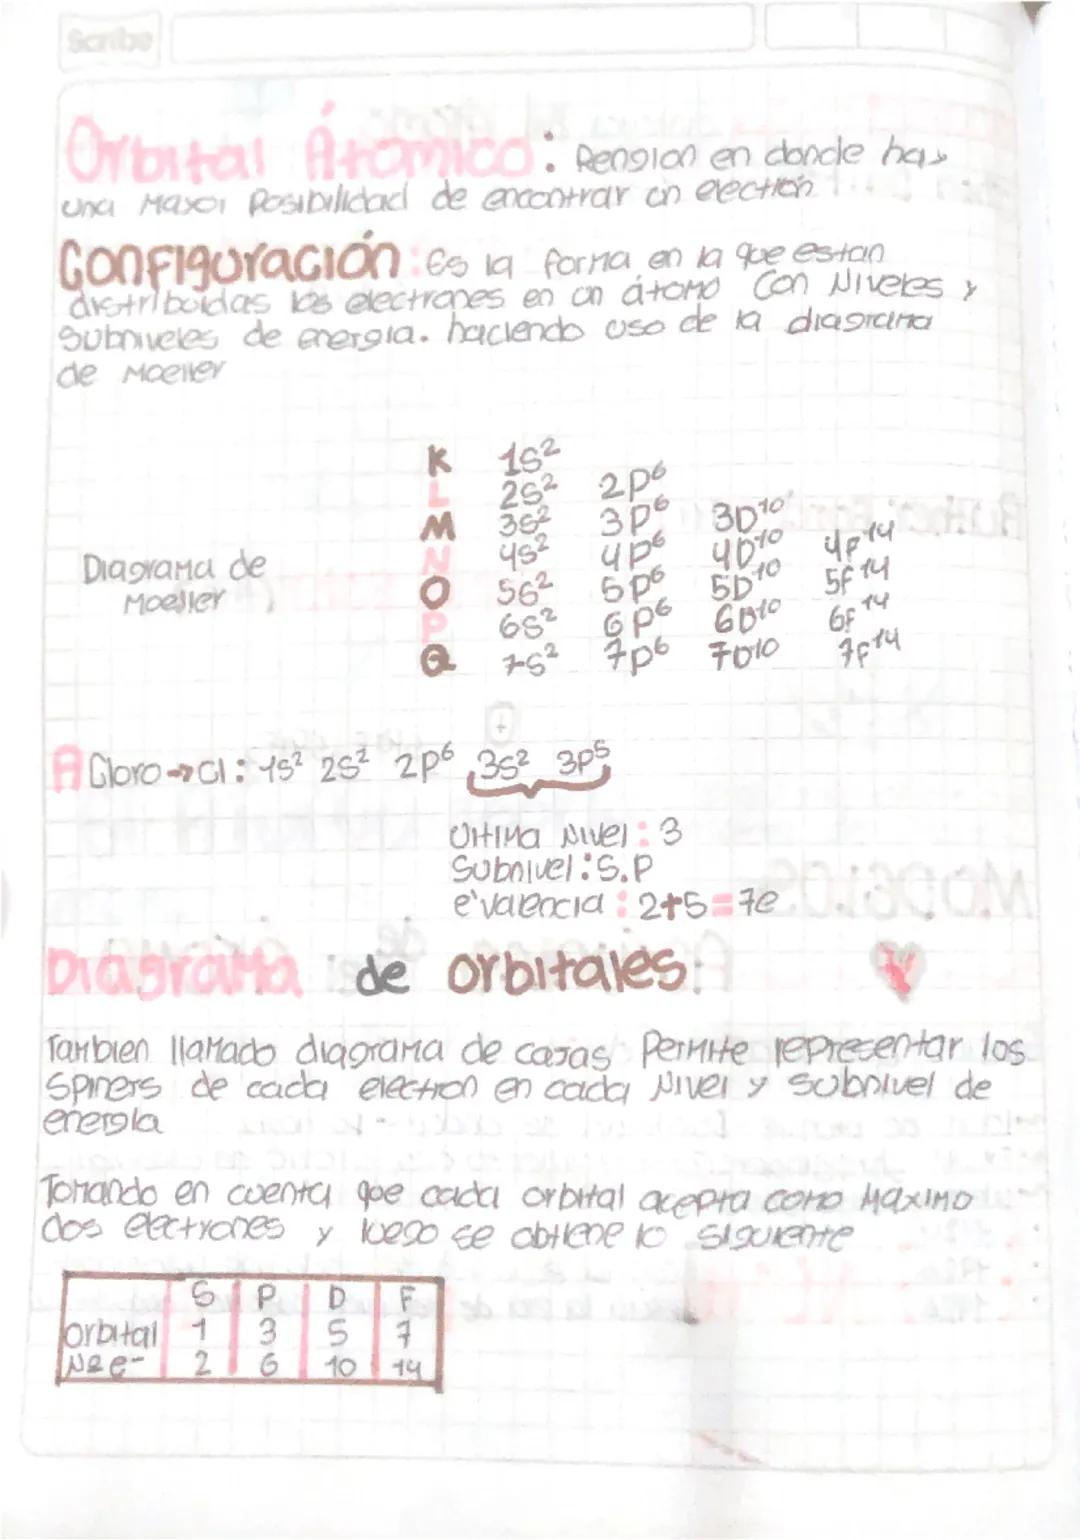 Scribe
Orbital Átomico: Rengion en donde hay
una mayor Posibilidad de encontrar un electrón
Configuración: Es la forma en la que estan
distribuidas los electrones en un átomo con Niveles y
Subniveles de energia. haciendo uso de la diagrama
de Moeller
K 1S² 
L 2S² 2p⁶
M 3S² 3p⁶ 3D¹⁰
N 4S² 4p⁶ 4D¹⁰ 4F¹⁴
Diagrama de
Moeller
O 5S² 5p⁶ 5D¹⁰ 5F¹⁴
P 6S² 6p⁶ 6D¹⁰ 6F¹⁴
Q 7S² 7p⁶ 7D¹⁰ 7F¹⁴
A Cloro → Cl: 1S² 2S² 2p⁶ 3S² 3p⁵
Ultima Nivel: 3
Subnivel: S.P
e'valencia: 2+5=7e
Diagrama de orbitales:
Tambien llamado diagrama de casas Permite representar los
Spiners de cada electron en cada Nivel y subnivel de
energia
Tomando en cuenta que cada orbital acepta como Maximo
dos electrones y luego se obtiene lo siguiente
S P D F
orbital 1 3 5 7
Nº e- 2 6 10 14